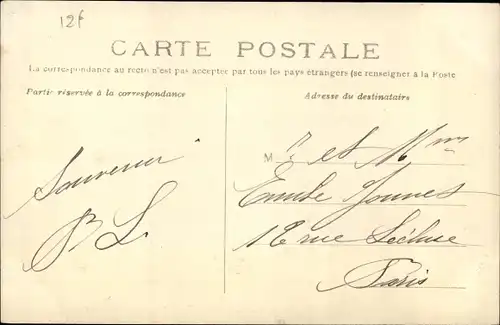 12f
CARTE POSTALE
La correspondance au recto n'est pas acceptée par tous les pays étrangers (se renseigner à la Poste
Partie réservée à la correspondance
Adresse du destinataire
Souvenir
B L.
M r et Mme
Emile
18 rue Lécluse
Paris